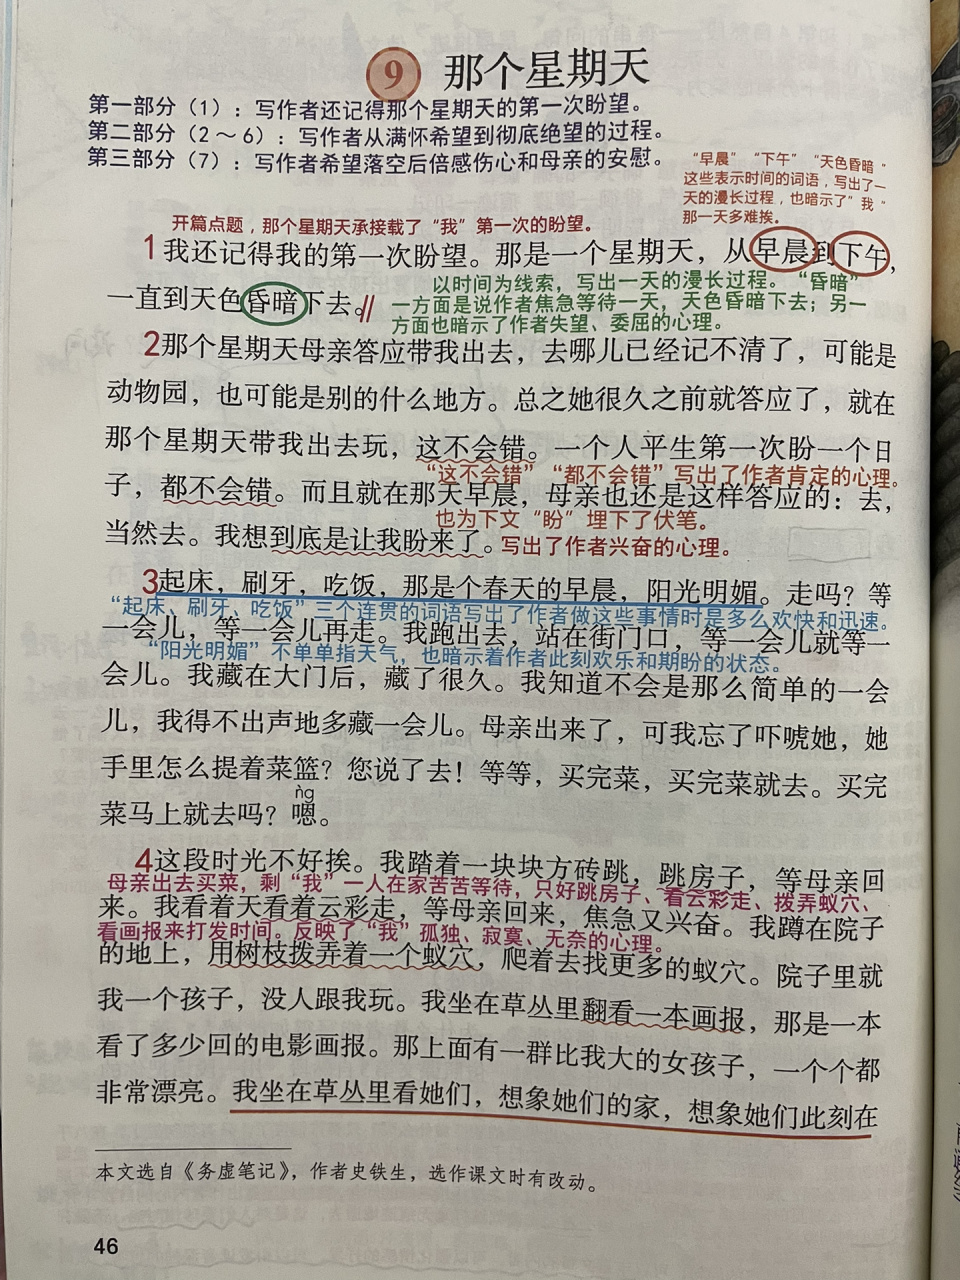 9 那个星期天
第一部分（1）：写作者还记得那个星期天的第一次盼望。
第二部分（2～6）：写作者从满怀希望到彻底绝望的过程。
第三部分（7）：写作者希望落空后倍感伤心和母亲的安慰。
“早晨”“下午”“天色昏暗”
这些表示时间的词语，写出了一
天的漫长过程，也暗示了“我”
那一天多难挨。
开篇点题，那个星期天承接载了“我”第一次的盼望。
1我还记得我的第一次盼望。那是一个星期天，从早晨到下午，
一直到天色昏暗下去。
以时间为线索，写出一天的漫长过程。“昏暗”
一方面是说作者焦急等待一天，天色昏暗下去；另一
方面也暗示了作者失望、委屈的心理。
2那个星期天母亲答应带我出去，去哪儿已经记不清了，可能是
动物园，也可能是别的什么地方。总之她很久之前就答应了，就在
那个星期天带我出去玩，这不会错。一个人平生第一次盼一个日
“这不会错”“都不会错”写出了作者肯定的心理。
子，都不会错。而且就在那天早晨，母亲也还是这样答应的：去，
也为下文“盼”埋下了伏笔。
当然去。我想到底是让我盼来了。写出了作者兴奋的心理。
3起床，刷牙，吃饭，那是个春天的早晨，阳光明媚。走吗？等
“起床、刷牙、吃饭”三个连贯的词语写出了作者做这些事情时是多么欢快和迅速。
一会儿，等一会儿再走。我跑出去，站在街门口，等一会儿就等一
“阳光明媚”不单单指天气，也暗示着作者此刻欢乐和期盼的状态。
会儿。我藏在大门后，藏了很久。我知道不会是那么简单的一会
儿，我得不出声地多藏一会儿。母亲出来了，可我忘了吓唬她，她
手里怎么提着菜篮？您说了去！等等，买完菜，买完菜就去。买完
ǹg
菜马上就去吗？嗯。
4这段时光不好挨。我踏着一块块方砖跳，跳房子，等母亲回
母亲出去买菜，剩“我”一人在家苦苦等待，只好跳房子、看云彩走、拨弄蚁穴、
来。我看着天看着云彩走，等母亲回来，焦急又兴奋。我蹲在院子
看画报来打发时间。反映了“我”孤独、寂寞、无奈的心理。
的地上，用树枝拨弄着一个蚁穴，爬着去找更多的蚁穴。院子里就
我一个孩子，没人跟我玩。我坐在草丛里翻看一本画报，那是一本
看了多少回的电影画报。那上面有一群比我大的女孩子，一个个都
非常漂亮。我坐在草丛里看她们，想象她们的家，想象她们此刻在
本文选自《务虚笔记》，作者史铁生，选作课文时有改动。
46